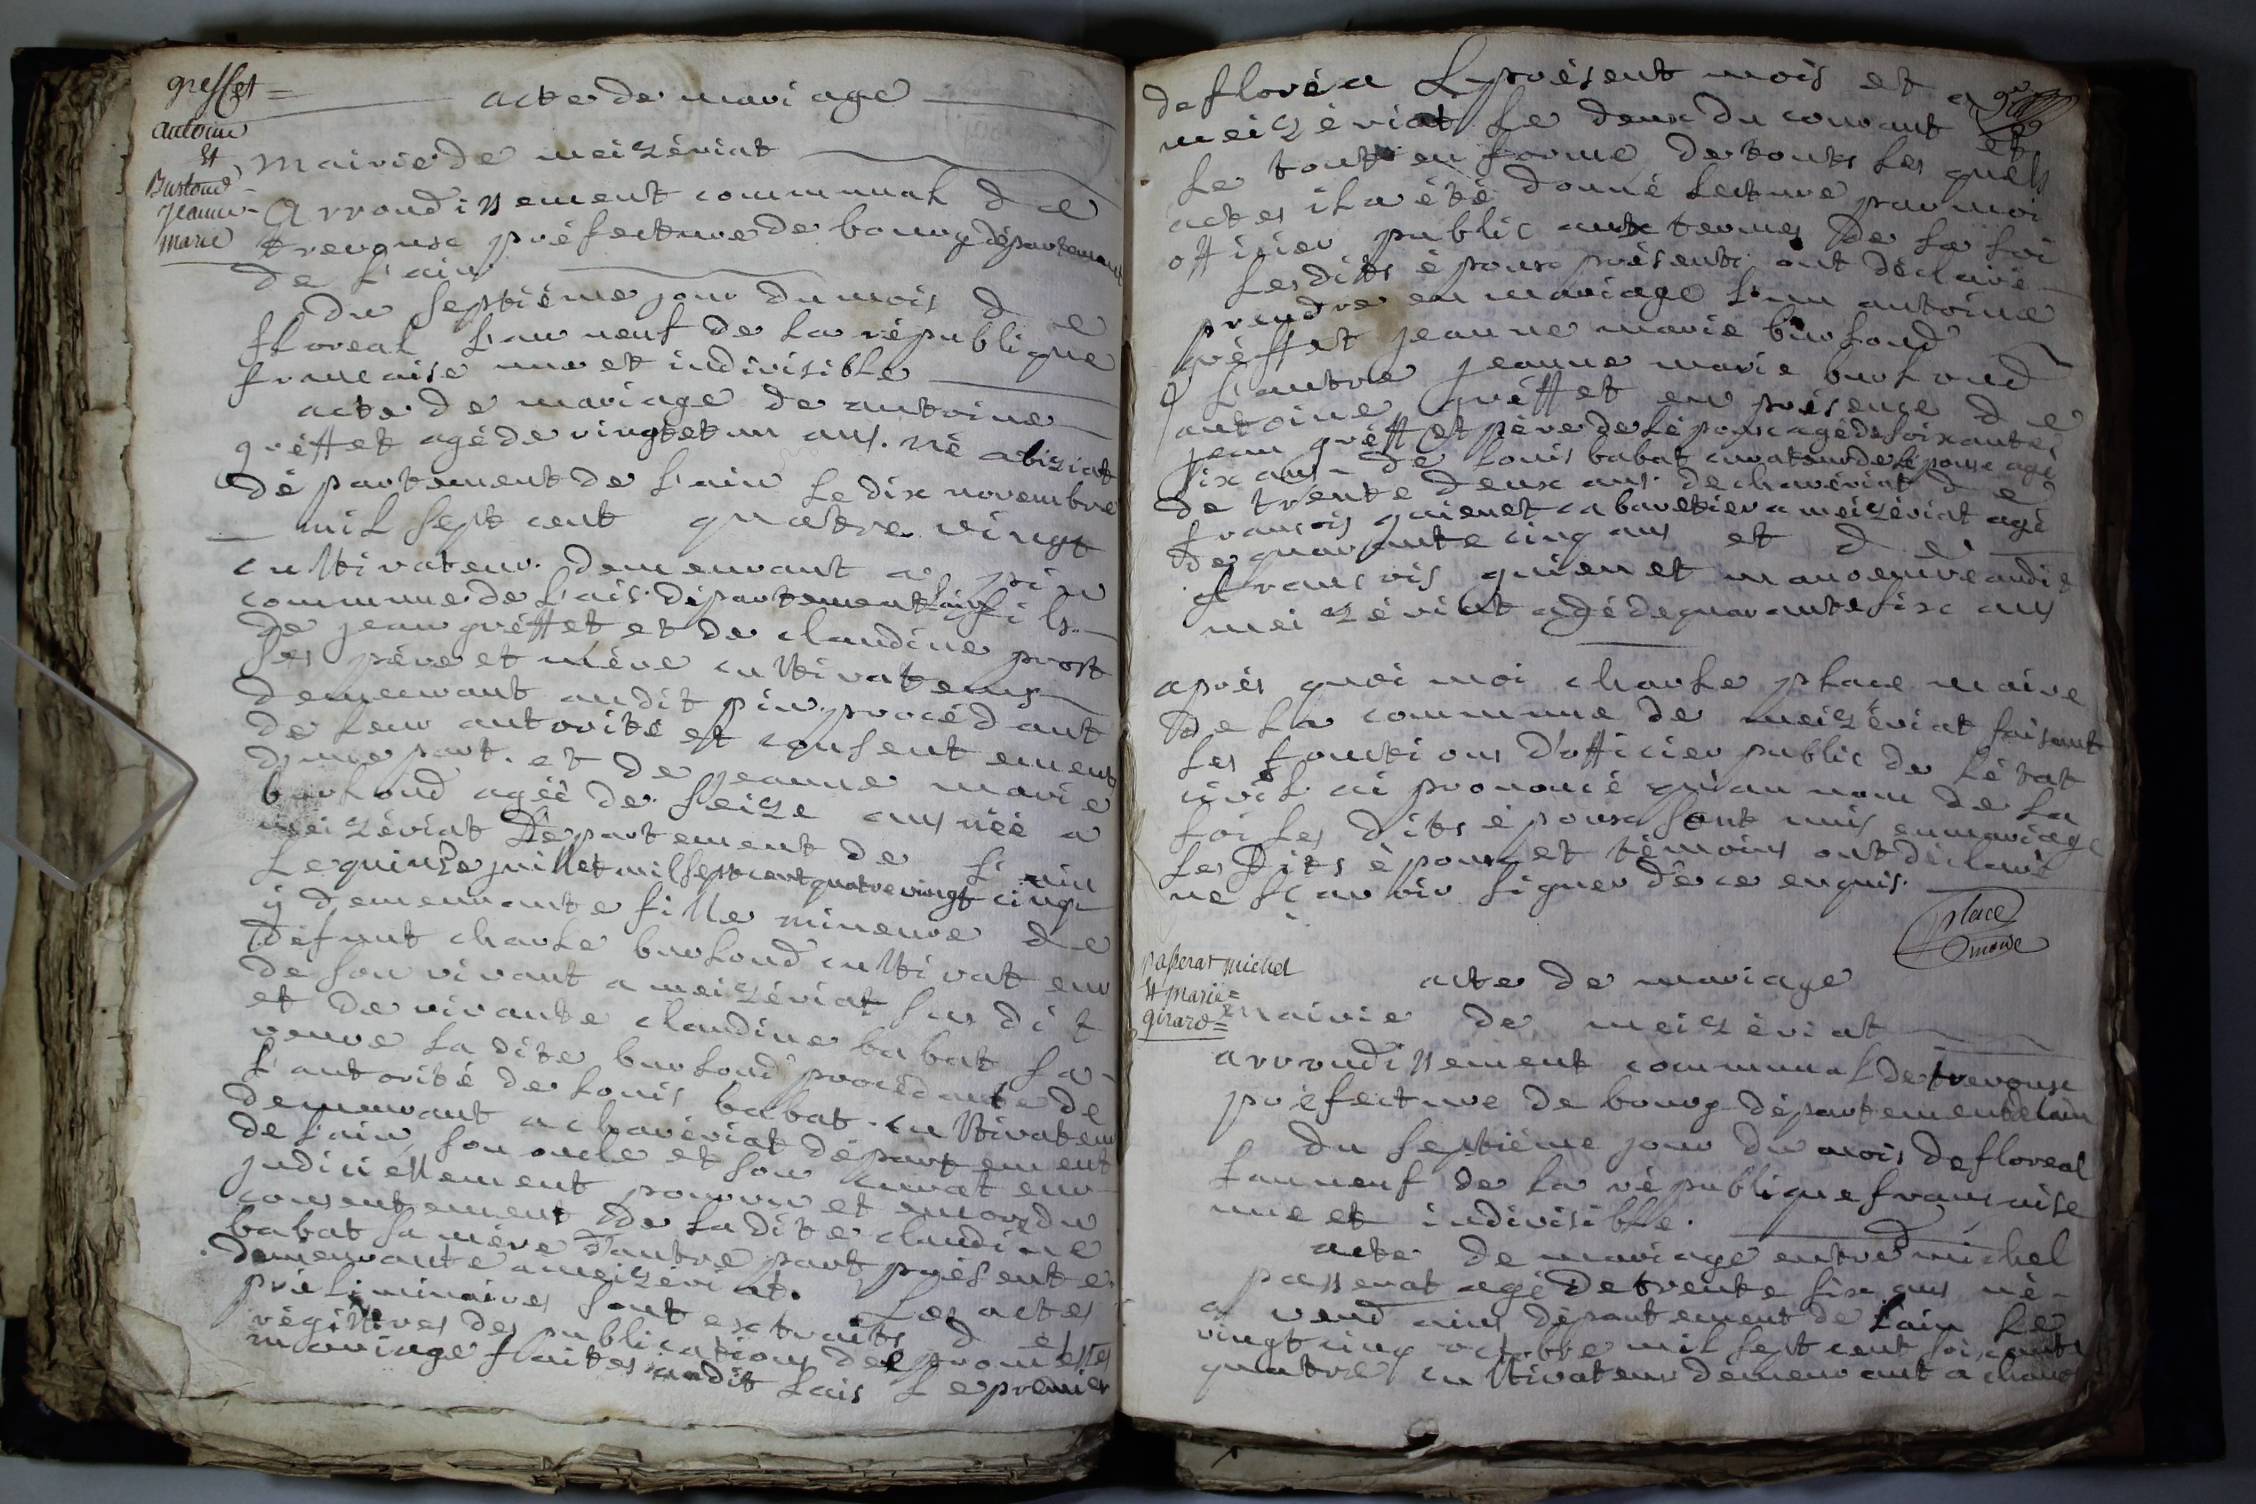 greffet =
antoine
et
Burtoud
jeanne
marie
acte de mariage
mairie de meizériat
arrondissement communal de
trevoux préfecture de bourg département
de l'ain
du septième jour du mois de
floreal l'an neuf de la république
francaise une et indivisible
acte de mariage de antoine
gréffet agé de vingt et un ans. né a biziat
département de l'ain le dix novembre
mil sept cent quatre vingt
cultivateur demeurant a pin
commune de lais département fils
de jean gréffet et de claudine prost
ses père et mère cultivateurs
demeurant audit pin procédant
de leur autorité et consentement
d'une part. et de jeanne marie
burhoud agéé de seize ans néé a
meizériat département de l'ain
le quinze juillet mil sept cent quatre vingt cinq
y demeurante fille mineure de
défunt charle burhoud cultivateur
de son vivant a meizériat susdit
et de vivante claudine babat sa
veuve la dite burhoud procédante de
l'autorité de louis babat cultivateur
demeurant a chavériat département
de l'ain, son oncle et son curateur
judiciellement pourvu et du
consentement de la dite claudine
babat sa mère d'autre part présente
demeurante a meizériat. Les actes
préliminaires sont extraits des
régittres des publications de promesses
mariage faites audit lais le premier
de floréa l présent mois et a
meizériat le deux du courant et
le tout en forme de touts les quels
actes il a été donné lecture par moi
officier public aux termes de la loi
Lesdits époux présents ont déclaré
prendre en mariage l'un antoine
gréffet jeanne marie burhoud
l'autre jeanne marie burhoud
antoine gréffet en présence de
jean gréffet père de lépoux agé de soixante
six ans de louis babat curateur de lépouse agé
de trente deux ans de chavériat de
fransois guienet cabaretier a meizériat agé
de quarante cinq ans et de
fransois guienet manoeuvre audit
meizériat agé de quarante six ans
après quoi moi charle place maire
de la commune de meizériat faisant
les fonctions d'officier public de létat
civil ai prononcé qu'au nom de la
loi les dits époux sont unis en mariage
les dits époux et témoins ont déclaré
ne scavoir signer de ce enquis.
place
maire
passerat michel
et marie =
girard =
acte de mariage
mairie de meizériat
arrondissement communal de trevoux
préfecture de bourg département de lain
du septième jour du mois de floreal
l'an neuf de la république fransaise
une et indivisible.
acte de mariage entre michel
passerat agé de trente six ans né
a vend ains département de lain le
vingt cinq octobre mil sept cent soixante
quatre cultivateur demeurant a chave